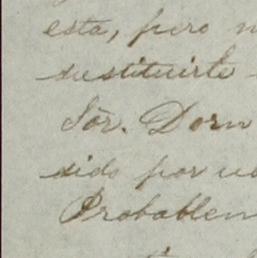 esta, pero n
sustituirlo
Sör. Dorn
sido por us
Probablem